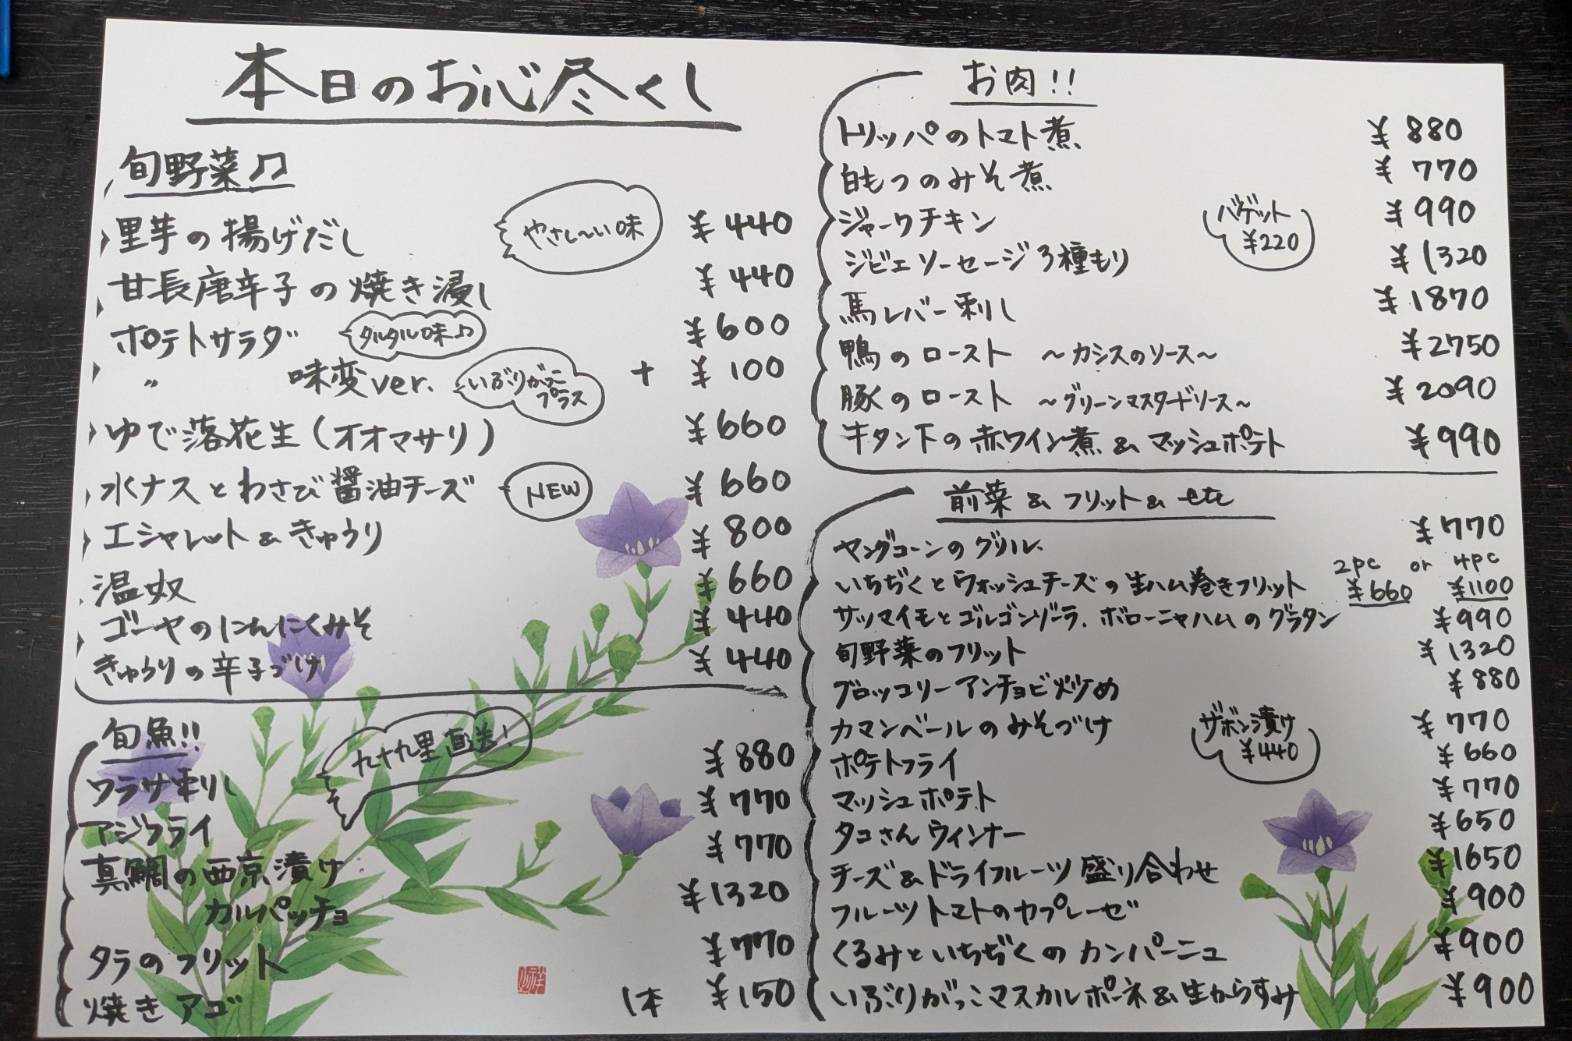 本日のお心尽くし
旬野菜♫
里芋の揚げだし やさし〜い味 ¥440
甘長唐辛子の焼き浸し ¥440
ポテトサラダ タルタル味♫ ¥600
〃 味変ver. いぶりがっこプラス + ¥100
ゆで落花生(オオマサリ) ¥660
水ナスとわさび醤油チーズ NEW ¥660
エシャレット&きゅうり ¥800
温奴 ¥660
ゴーヤのにんにくみそ ¥440
きゅうりの辛子づけ ¥440
旬魚!! 九十九里直送!
ワラサ刺し ¥880
アジフライ ¥770
真鯛の西京漬け ¥770
カルパッチョ ¥1320
タラのフリット ¥770
焼きアゴ 1本 ¥150
お肉!!
トリッパのトマト煮 ¥880
白もつのみそ煮 ¥770
ジャークチキン ¥990
バゲット
¥220
ジビエソーセージ3種もり ¥1320
馬レバー刺し ¥1870
鴨のロースト 〜カシスのソース〜 ¥2750
豚のロースト 〜グリーンマスタードソース〜 ¥2090
牛タン下の赤ワイン煮&マッシュポテト ¥990
前菜&フリット&etc
ヤングコーンのグリル ¥770
2pc or 4pc
いちぢくとウォッシュチーズの生ハム巻きフリット ¥660 ¥1100
サツマイモとゴルゴンゾーラ、ボローニャハムのグラタン ¥990
旬野菜のフリット ¥1320
ブロッコリーアンチョビ炒め ¥880
カマンベールのみそづけ ¥770
ザボン漬け
¥440
ポテトフライ ¥660
マッシュポテト ¥770
タコさんウィンナー ¥650
チーズ&ドライフルーツ盛り合わせ ¥1650
フルーツトマトのカプレーゼ ¥900
くるみといちぢくのカンパーニュ ¥900
いぶりがっこマスカルポーネ&生からすみ ¥900